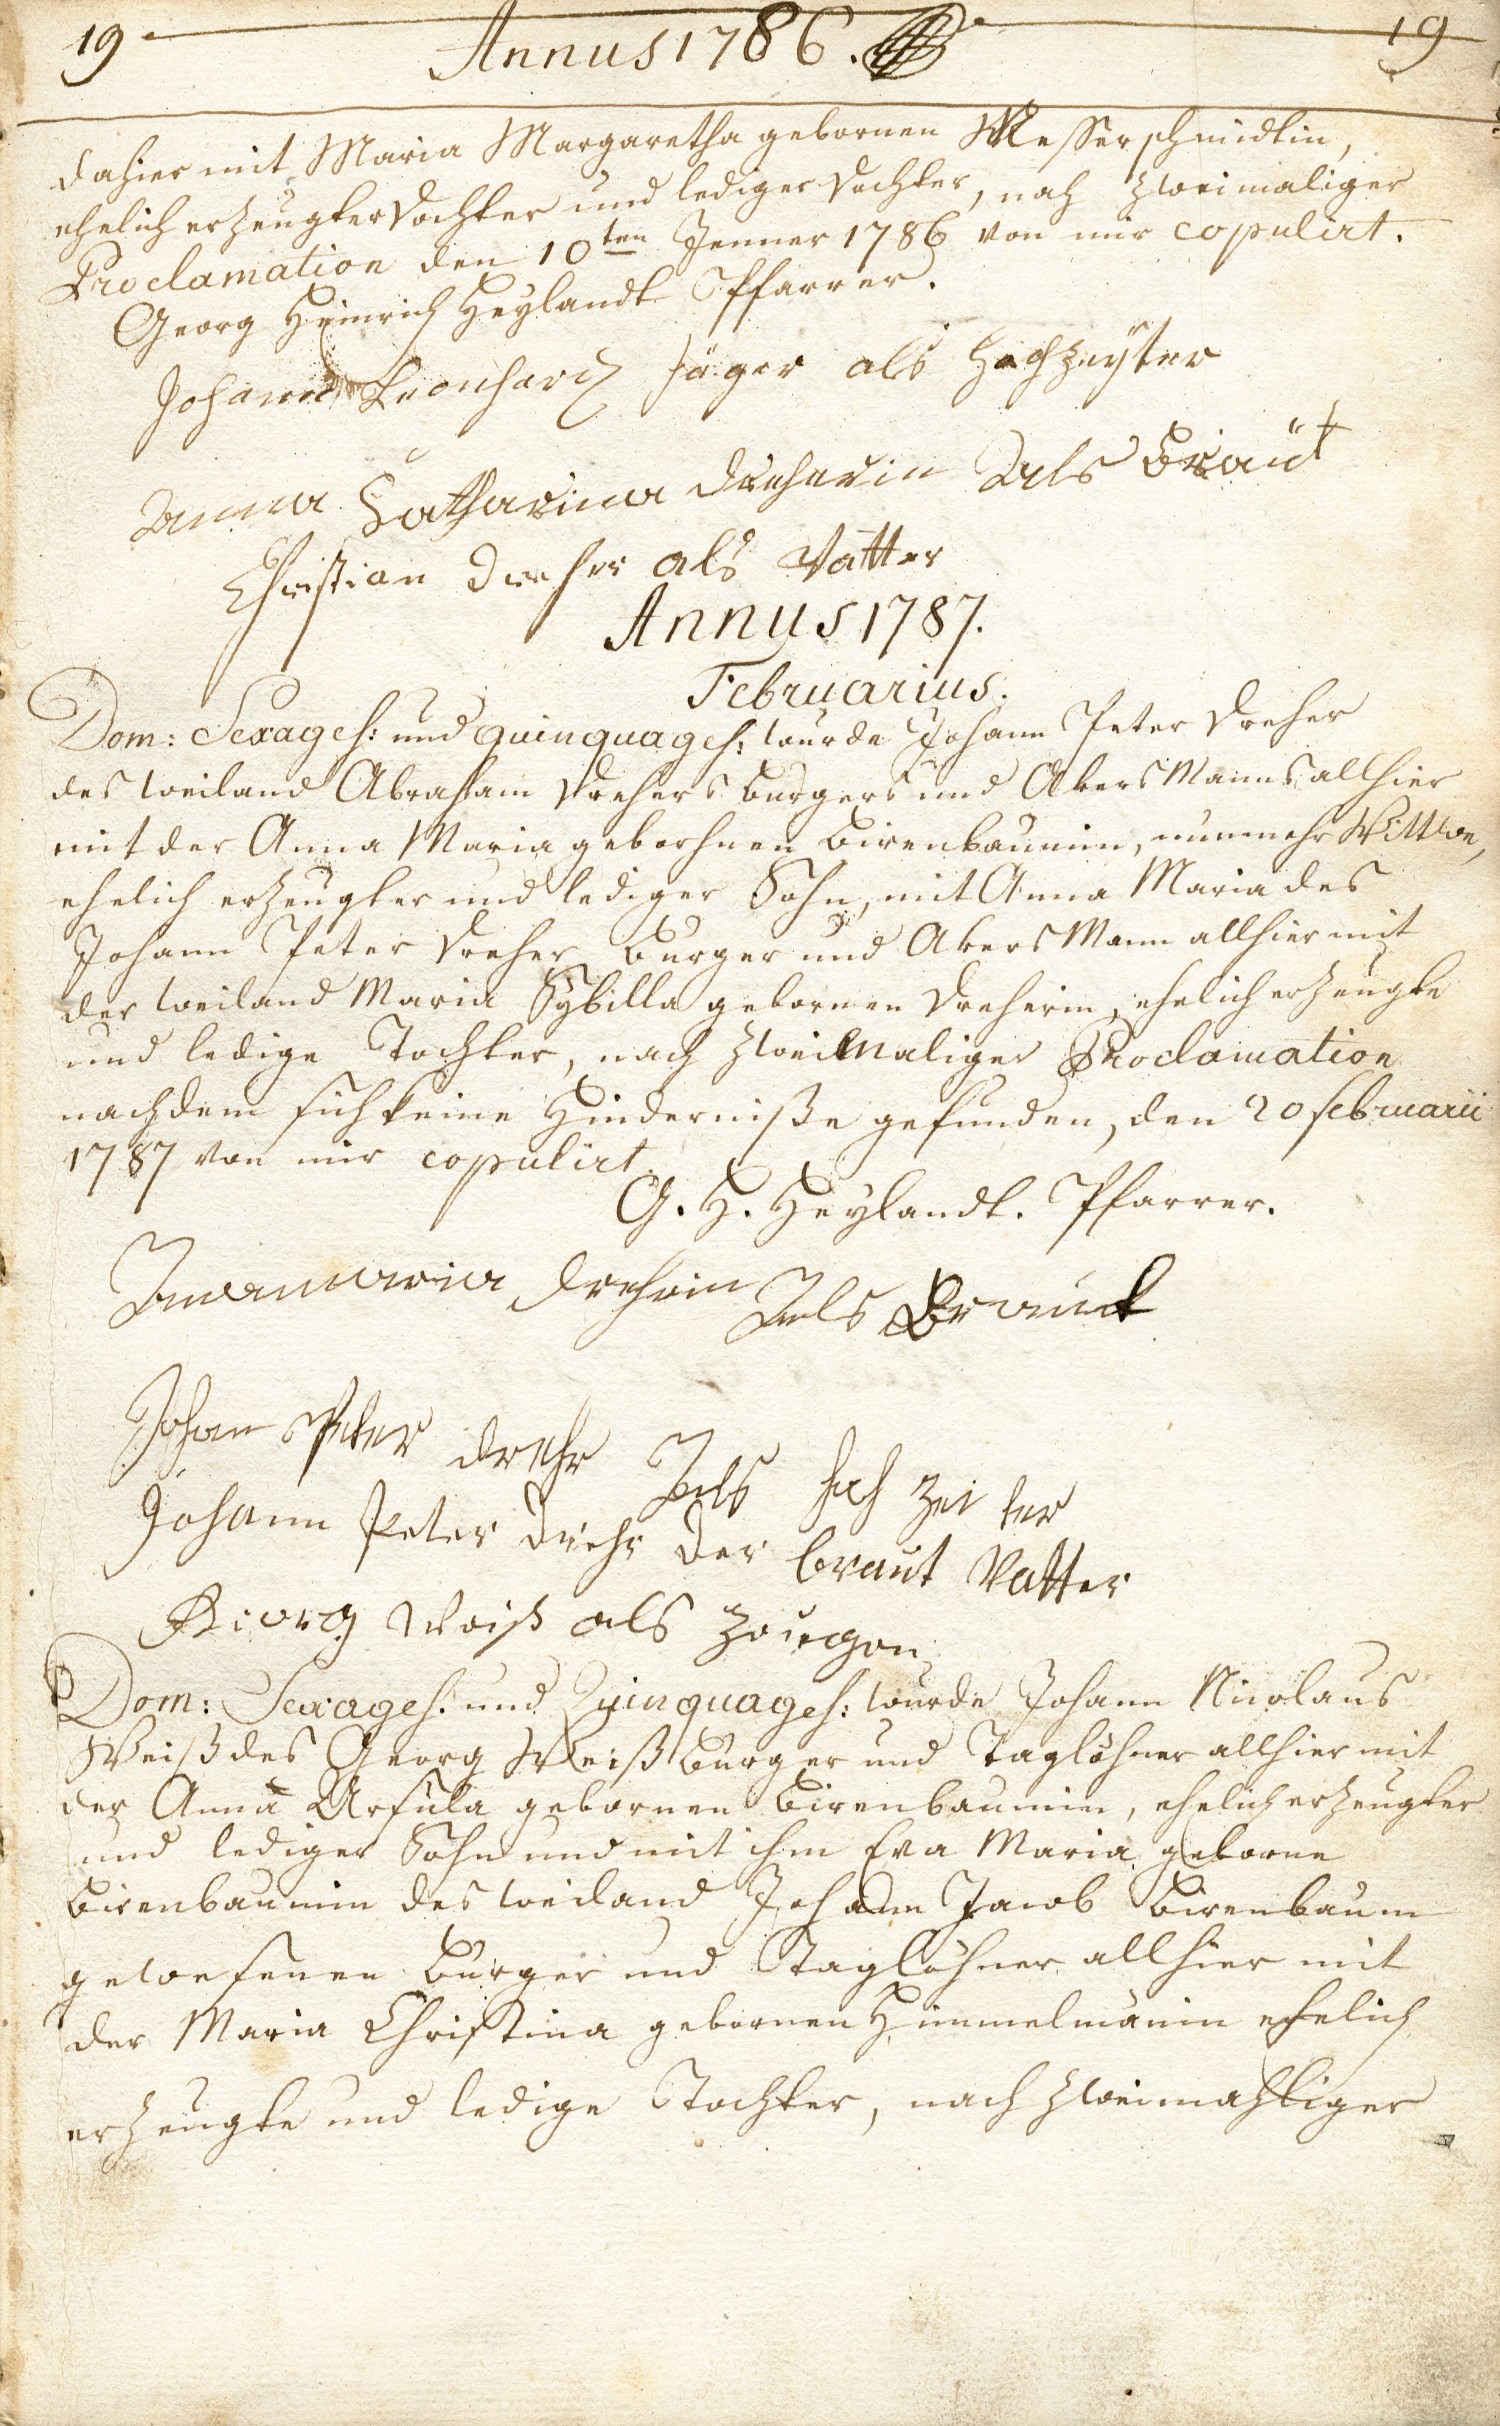 19 Annus 1786. 19
dahier mit Maria Margaretha gebornen Messerschmidtin,
ehelich erzeugter Dochter und lediger Dochter, nach zweimaliger
Proclamation den 10ten Jenner 1786 von mir copulirt.
Georg Heinrich Heylandt Pfarrer.
Johann Leonhard Jäger als Hochzeyter
Anna Catharina Dreherin Als Braut
Christian Dreher als Vatter
Annus 1787.
Februarius.
Dom: Sexages: und Quinquages: wurde Johann Peter Dreher
des weiland Abraham Drehers Burgers und Akers Manns allhier
mit der Anna Maria gebohrnen Birenbaumin, nunmehr Wittwe,
ehelich erzeugter und lediger Sohn, mit Anna Maria des
Johann Peter Dreher Burger und Akers Mann allhier mit
der weiland Maria Sybilla gebornen Dreherin, ehelich erzeugte
und ledige Tochter, nach zweimaliger Proclamation
nachdem sich keine Hinderniße gefunden, den 20 februarii
1787 von mir copulirt.
G. H. Heylandt. Pfarrer.
Anamaria Drehrin Als Braut
Johan Peter Drehr Als hoh zei ter
Johann Peter Drehr der braut Vatter
Georg Weiß als Zeugen
Dom: Sexages: und Quinquages: wurde Johann Nicolaus
Weiß des Georg Weiß Burger und Taglöhner allhier mit
der Anna Ursula gebornen Birenbaumin, ehelich erzeugter
und lediger Sohn und mit ihm Eva Maria geborne
Birenbaumin des weiland Johann Jacob Birenbaum
gewesenen Burger und Taglöhner allhier mit
der Maria Christina gebornen Himmelmanin ehelich
erzeugte und ledige Tochter, nach zweimahliger